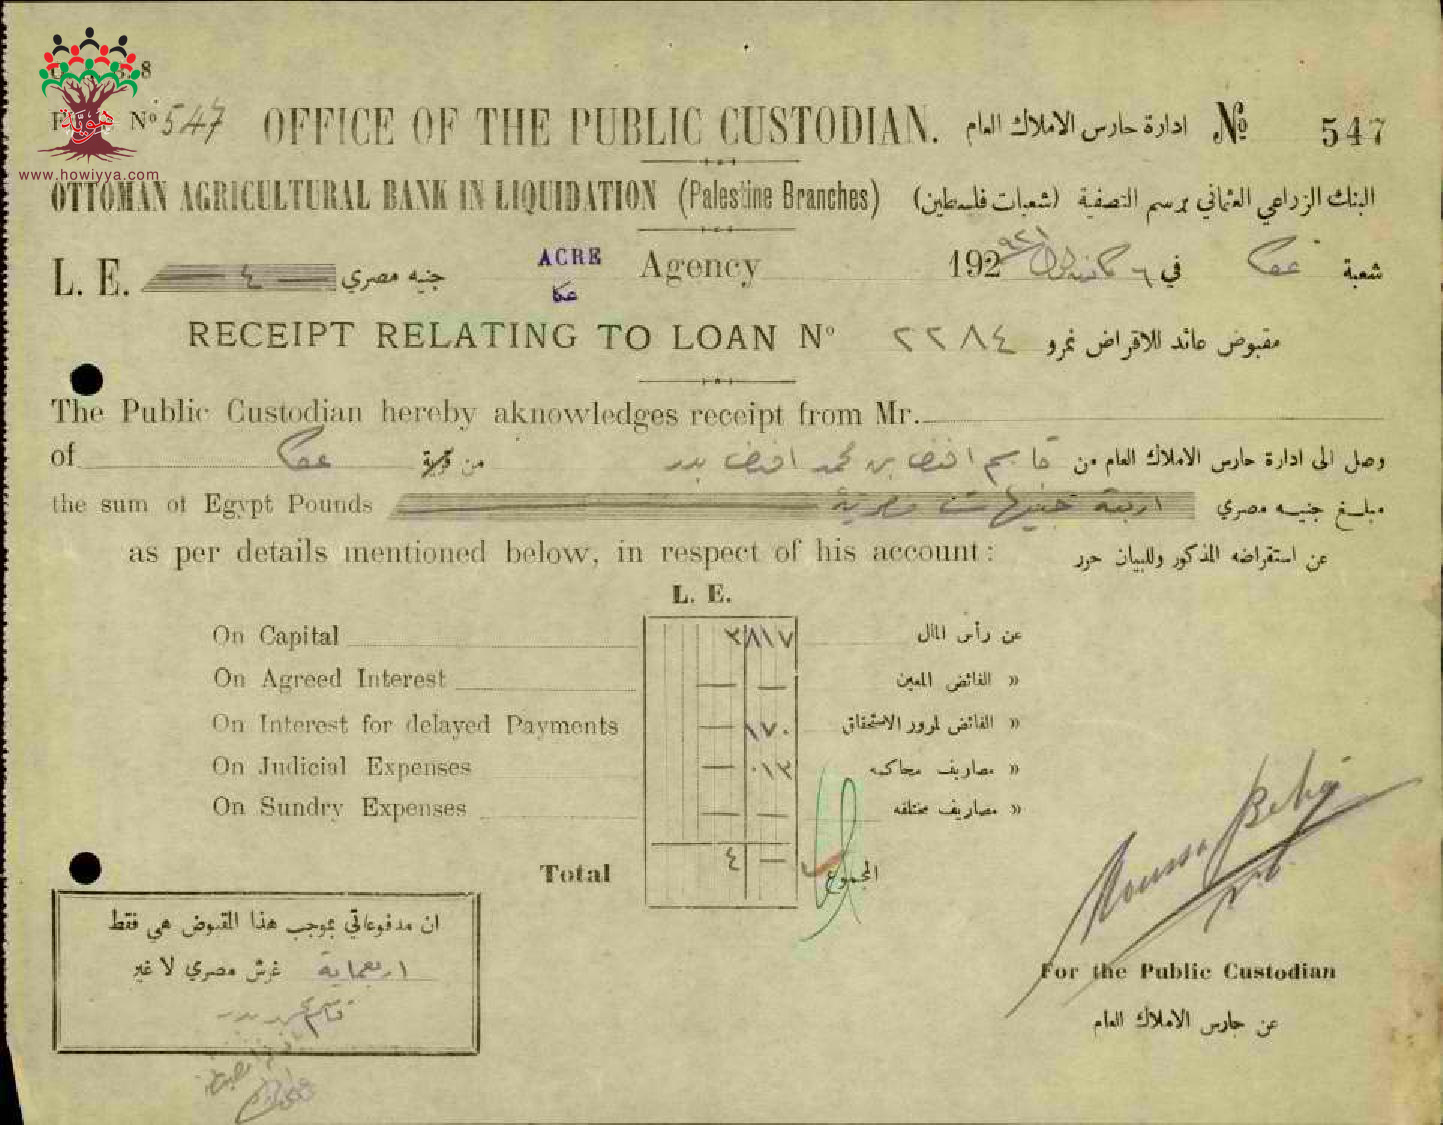 8
هوية
www.howiyya.com
Nº 547 OFFICE OF THE PUBLIC CUSTODIAN. ادارة حارس الاملاك العام Nº 547
OTTOMAN AGRICULTURAL BANK IN LIQUIDATION (Palestine Branches) البنك الزراعي العثماني برسم التصفية (شعبات فلسطين)
L. E. ٤ جنيه مصري ACRE عكا Agency 192 في ٦ كانون اول ٩٢١ شعبة عكا
RECEIPT RELATING TO LOAN Nº ٢٢٨٤ مقبوض عائد للاقراض نمرو
The Public Custodian hereby aknowledges receipt from Mr.
of عكا من وصل الى ادارة حارس الاملاك العام من قاسم افندي بن محمد افندي بدر
the sum of Egypt Pounds اربعة جنيهات مصرية مبلغ جنيه مصري
as per details mentioned below, in respect of his account : عن استقراضه المذكور وللبيان حرر
L. E.
On Capital ٣ ٨١٧ عن رأس المال
On Agreed Interest — — » الفائض المعين
On Interest for delayed Payments — ١٧٠ » الفائض لمرور الاستحقاق
On Judicial Expenses — ٠١٣ » مصاريف محاكمه
On Sundry Expenses — — » مصاريف مختلفه
Total ٤ — المجموع
ان مدفوعاتي بموجب هذا المقبوض هي فقط
اربعماية غرش مصري لا غير
قاسم محمد بدر
Moussa Behij
For the Public Custodian
عن حارس الاملاك العام